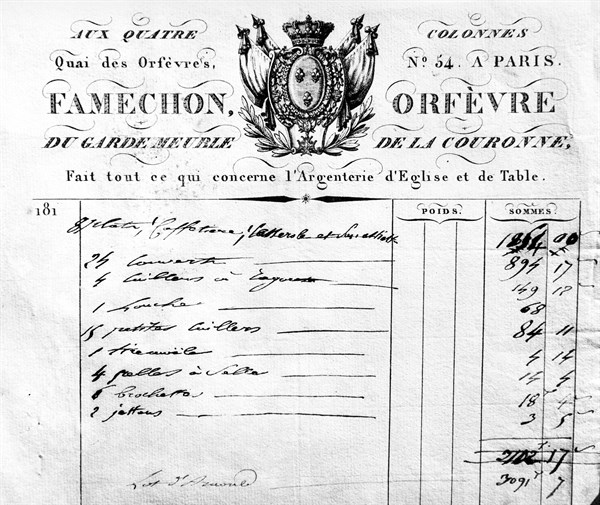 AUX QUATRE COLONNES
Quai des Orfèvres, No. 54. A PARIS.
FAMECHON, ORFÈVRE
DU GARDE MEUBLE DE LA COURONNE,
Fait tout ce qui concerne l'Argenterie d'Eglise et de Table.
181 POIDS. SOMMES.
8 plats, 1 Caffetiere, 1 Casserole et
24 couverts 894 17
4 cuillers à Ragout 149 18
1 Louche 68
15 petites cuillers 84 11
1 4 14
4 pelles à Selle 14 4
6 brochettes 18 4
2 jettons 3 5
3102 17
3091 7